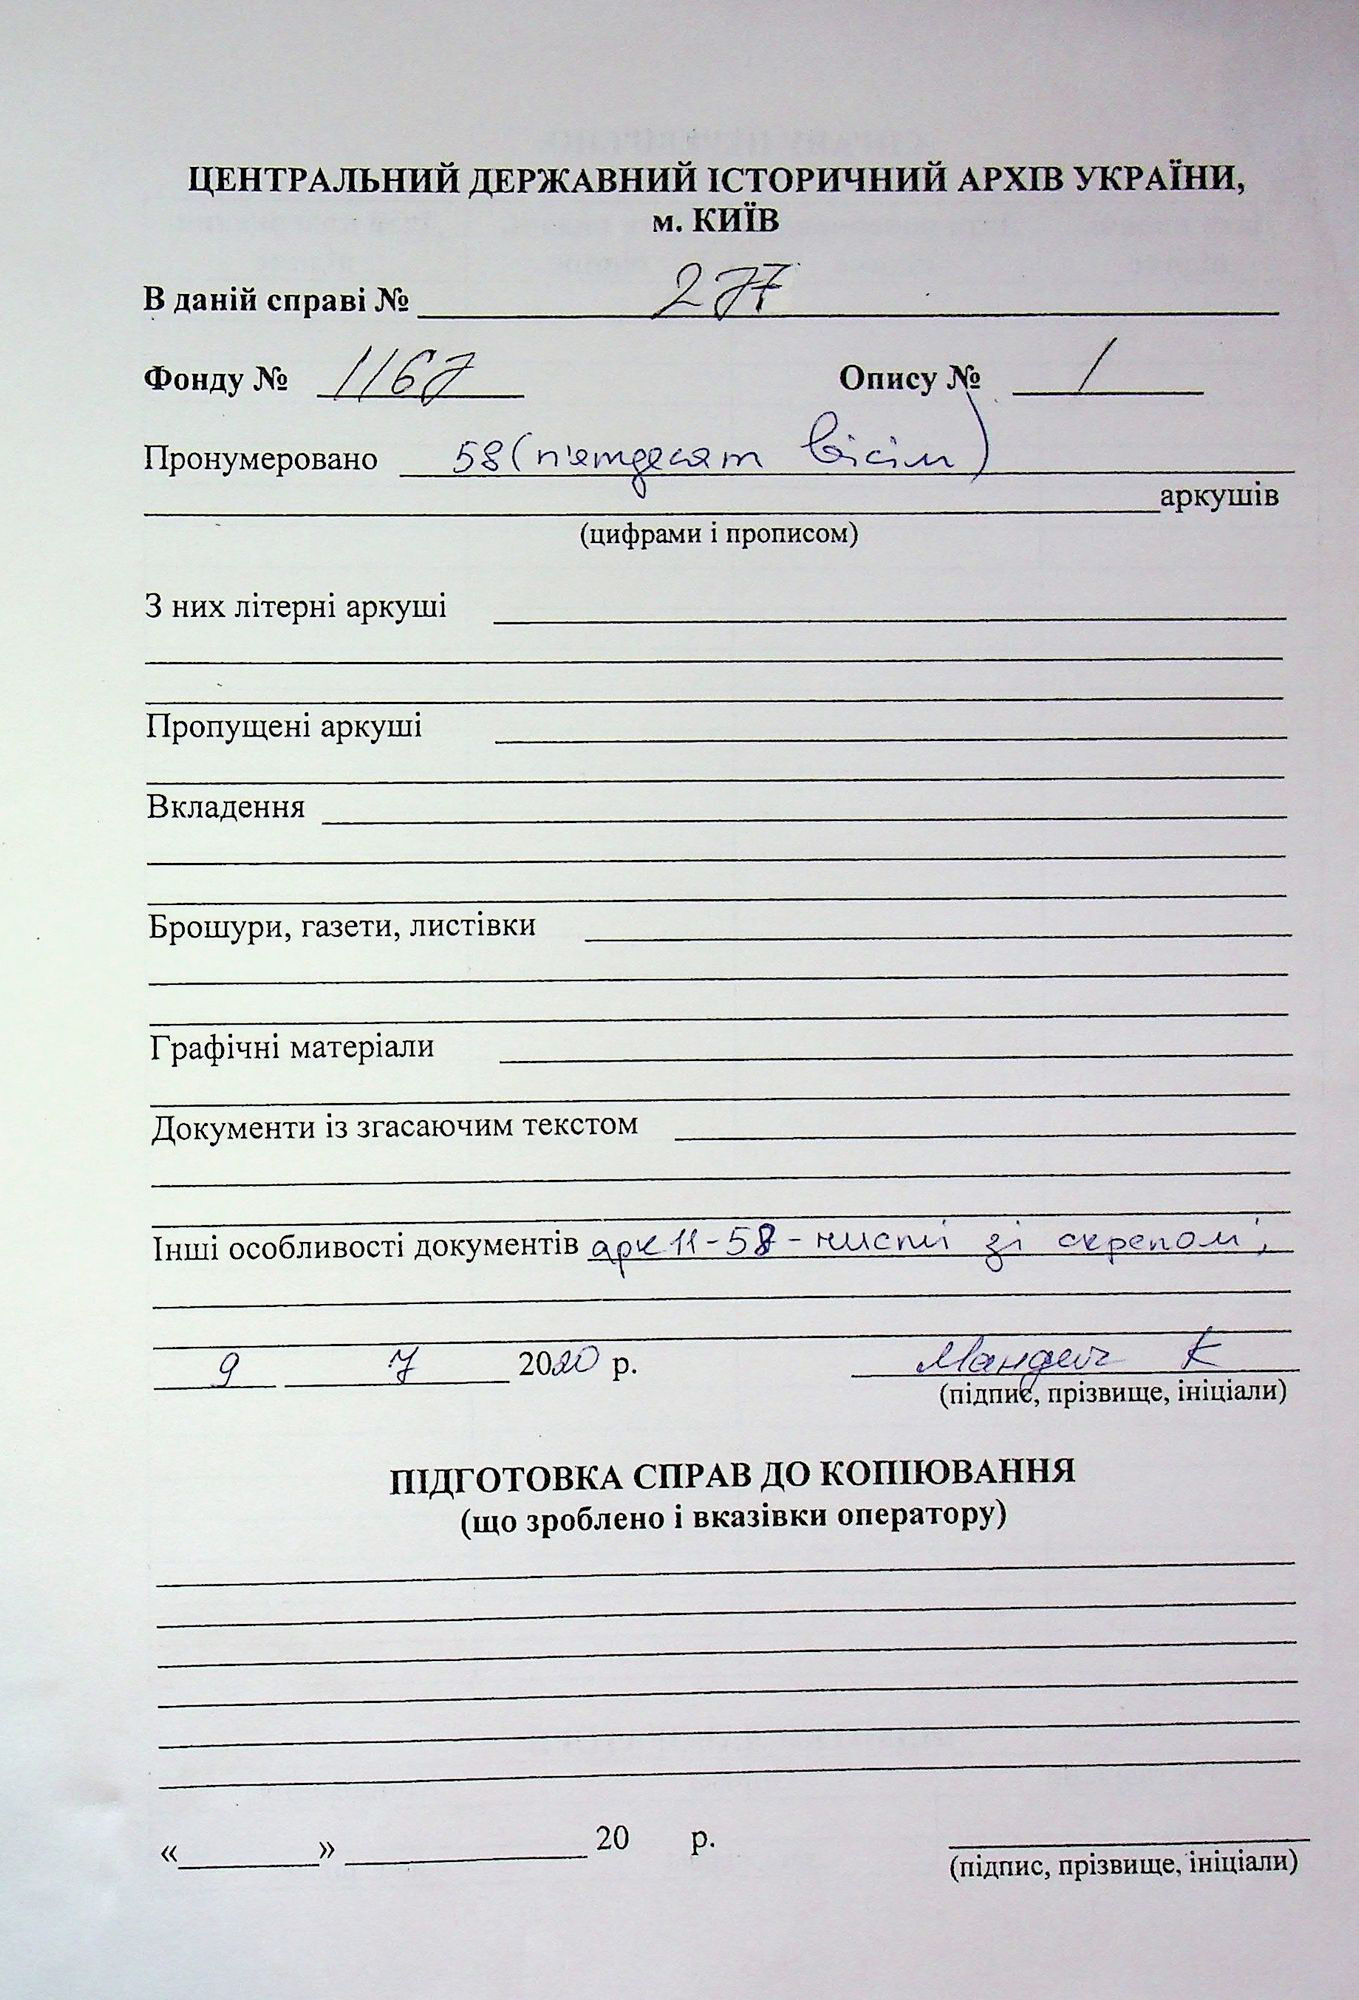 ЦЕНТРАЛЬНИЙ ДЕРЖАВНИЙ ІСТОРИЧНИЙ АРХІВ УКРАЇНИ,
м. КИЇВ
В даній справі № 277
Фонду № 1167 Опису № 1
Пронумеровано 58 (п'ятдесят вісім)
аркушів
(цифрами і прописом)
З них літерні аркуші
Пропущені аркуші
Вкладення
Брошури, газети, листівки
Графічні матеріали
Документи із згасаючим текстом
Інші особливості документів арк 11-58 - чисті зі скрепом;
9 7 2020 р.
К
(підпис, прізвище, ініціали)
ПІДГОТОВКА СПРАВ ДО КОПІЮВАННЯ
(що зроблено і вказівки оператору)
« » 20 р.
(підпис, прізвище, ініціали)